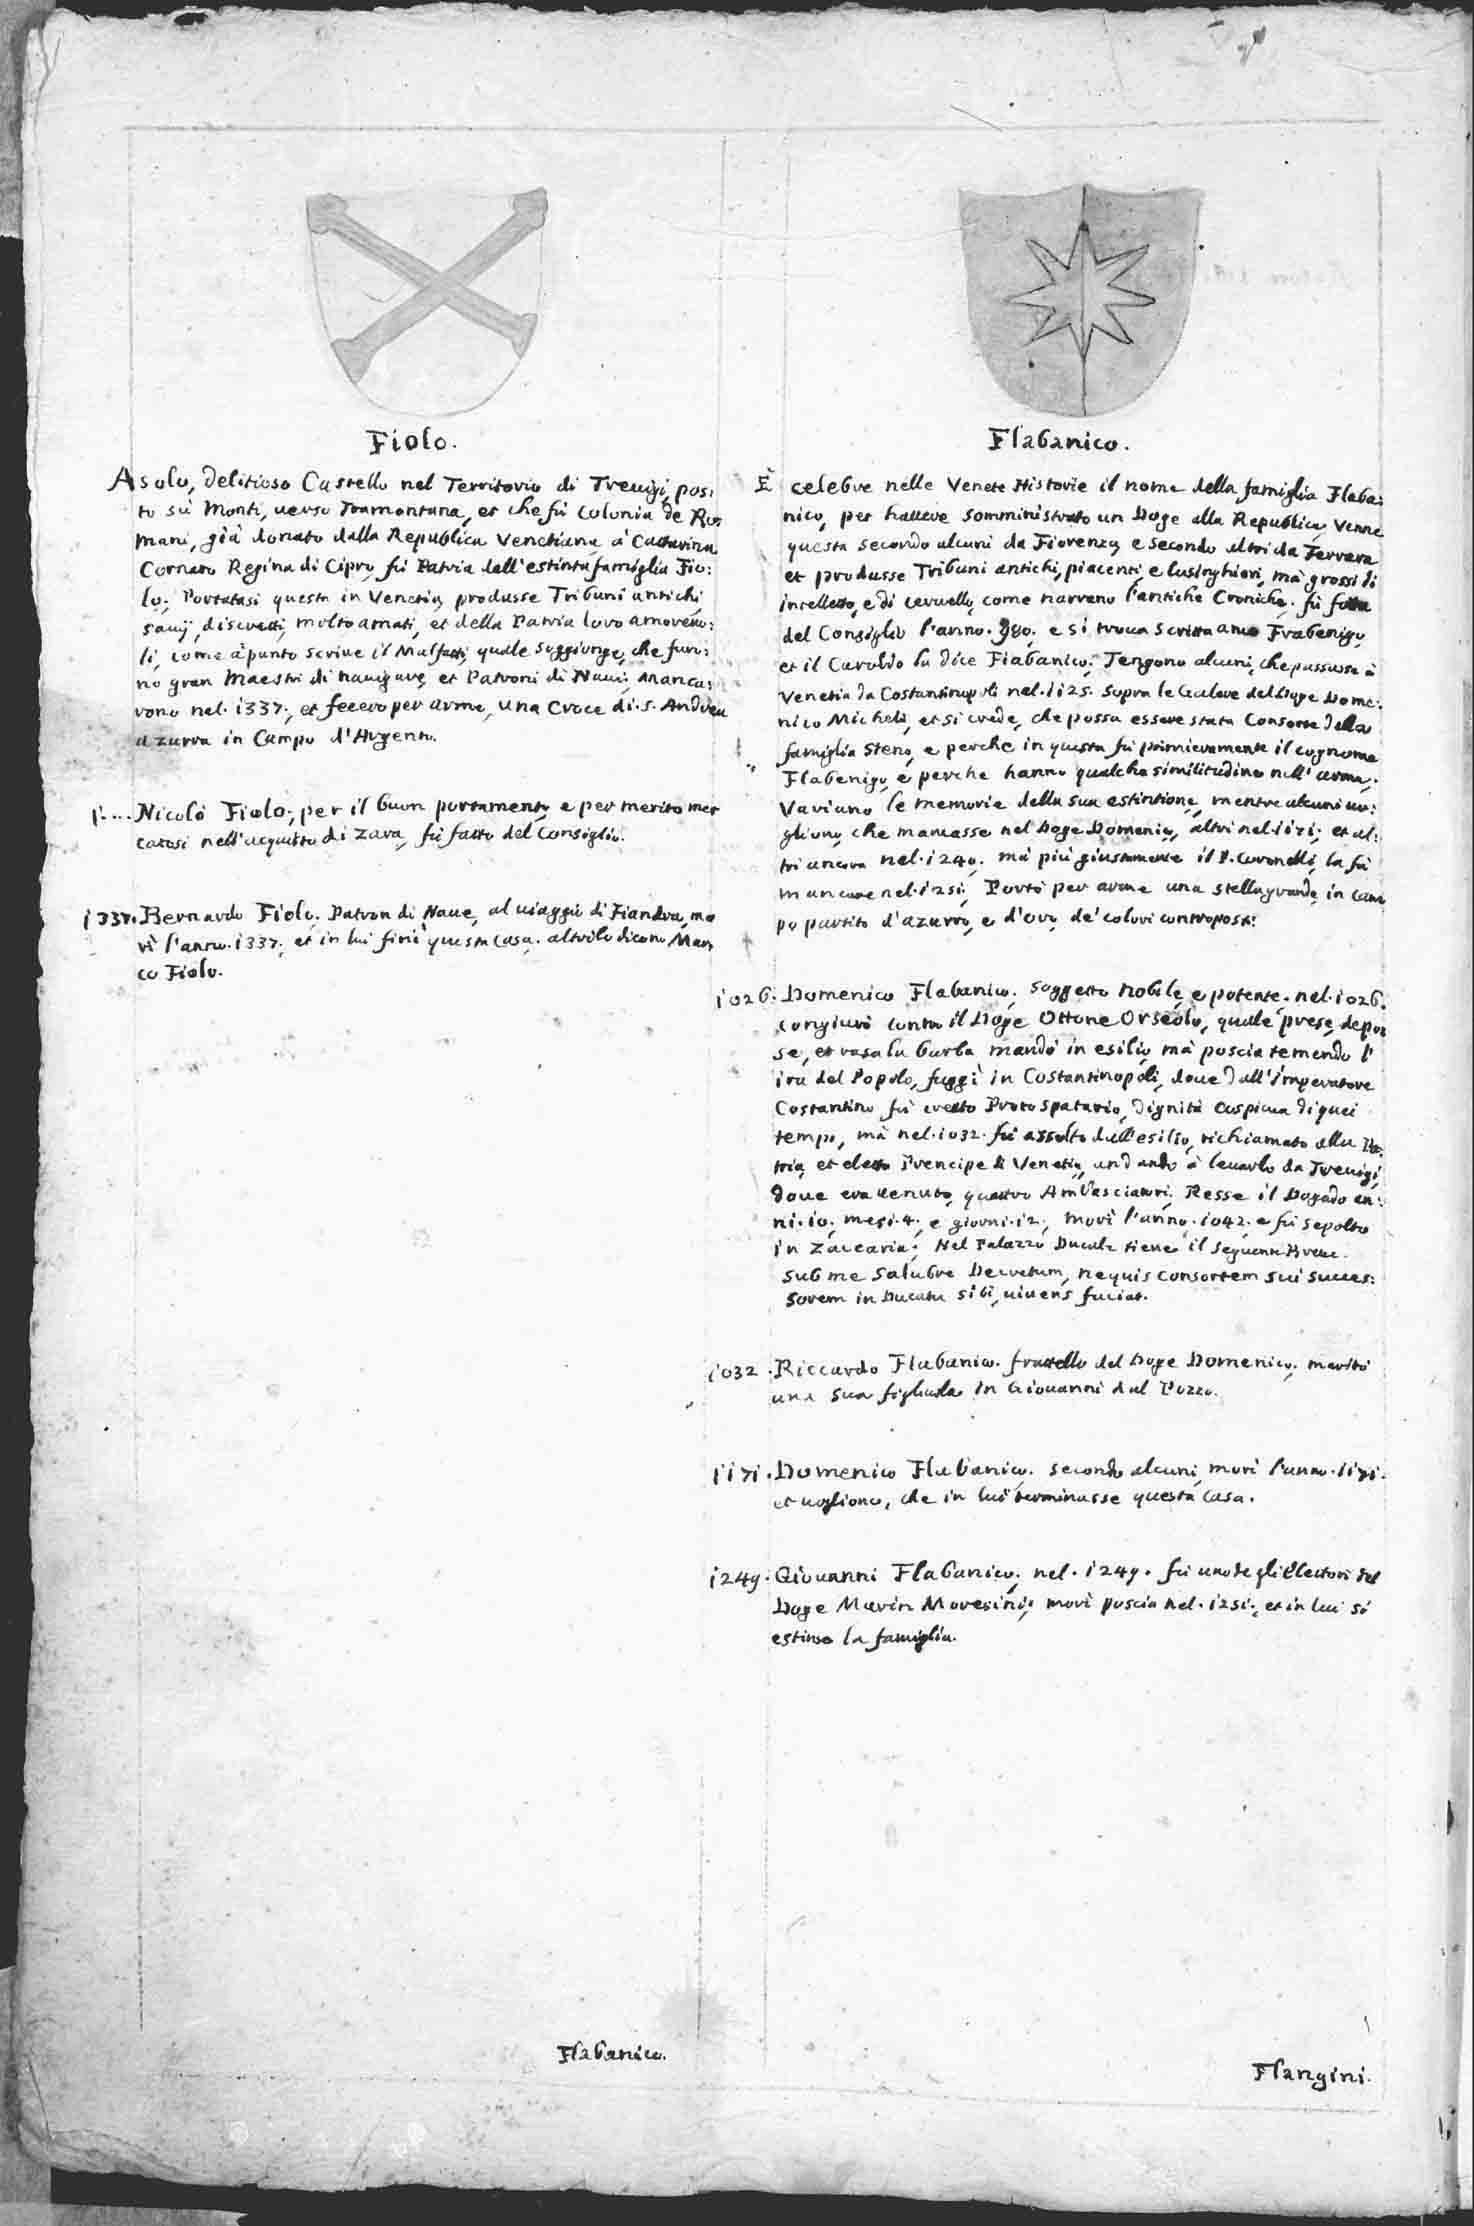 Fiolo.
Asolo, delitioso Castello nel Territorio di Treuigi, pos:
to sù Monti, uerso Tramontana, et che fù Colonia de Ro:
mani, già donato dalla Republica Venetiana à Cattarina
Cornaro Regina di Cipro, fù Patria dell'estinta famiglia Fio:
lo; Portatasi questa in Venetia, produsse Tribuni antichi,
sauij, discretti, molto amati, et della Patria loro amoreuo:
li, come à punto scriue il Malfatti, quale soggiunge, che furo:
no gran Maestri di nauigare, et Patroni di Naui; Manca:
rono nel. 1337., et fecero per arme, una Croce di. S. Andrea
azurra in Campo d'Argento.
1.... Nicolò Fiolo; per il buon portamento, e per merito mer
catosi nell'acquisto di Zara, fù fatto del Consiglio.
1337. Bernardo Fiolo. Patron di Naue, al uiaggio di Fiandra, mo
rì l'anno. 1337., et in lui finì questa casa. altri lo dicono Mar
co Fiolo.
Flabanico.
Flabanico.
È celebre nelle Venete Historie il nome della famiglia Flaba:
nico, per hauere somministrato un Doge alla Republica; Venne
questa secondo alcuni da Fiorenza, e secondo altri da Ferrara
et produsse Tribuni antichi, piacenti, e lusinghieri, mà grossi di
intelletto, e di ceruello, come narrano l'antiche Croniche. fù fatta
del Consiglio l'anno. 980. e si troua scritta anco Frabenigo,
et il Caroldo la dice Fiabanico; Tengono alcuni, che passasse à
Venetia da Costantinopoli nel. 1125. sopra le Galere del Doge Dome:
nico Micheli, et si crede, che possa essere stata Consorte della
famiglia Steno, e perche in questa fù primieramente il cognome
Flabenigo, e perche hanno qualche similitudine nell'arma.
Variano le memorie della sua estintione, mentre alcuni uo:
gliono, che mancasse nel Doge Domenico, altri nel. 1171; et al:
tri ancora nel. 1240. mà più giustamente il P. Coronelli, la fà
mancare nel. 1251; Portò per arme una stella grande in cam
po partito d'azurro, e d'oro, de' colori contraposti.
1026. Domenico Flabanico. soggetto nobile, e potente. nel. 1026.
congiurò contro il Doge Ottone Orseolo, quale prese, depo:
se, et rasa la barba mandò in esilio, mà poscia temendo l'
ira del Popolo, fuggì in Costantinopoli, doue dall'Imperatore
Costantino fù creato Protospatario, dignità cospicua di quei
tempi, mà nel. 1032. fù assolto dall'esilio, richiamato alla Pa:
tria, et eletto Prencipe di Venetia, andando à leuarlo da Treuigi,
doue era uenuto, quattro Ambasciatori; Resse il Dogado an:
ni. 10; mesi. 4., e giorni. 12., morì l'anno. 1042. e fù sepolto
in Zaccaria; Nel Palazzo Ducale tiene il seguente Breue.
sub me salubre Decretum, nequis consortem sui succes:
sorem in Ducatu sibi, uiuens faciat.
1032. Riccardo Flabanico. fratello del Doge Domenico; maritò
una sua figliuola in Giouanni dal Pozzo.
1171. Domenico Flabanico. secondo alcuni, morì l'anno. 1171.
et uogliono, che in lui terminasse questa casa.
1249. Giouanni Flabanico; nel. 1249. fù uno degli Elettori del
Doge Marin Moresini; morì poscia nel. 1251., et in lui si
estinse la famiglia.
Flangini.